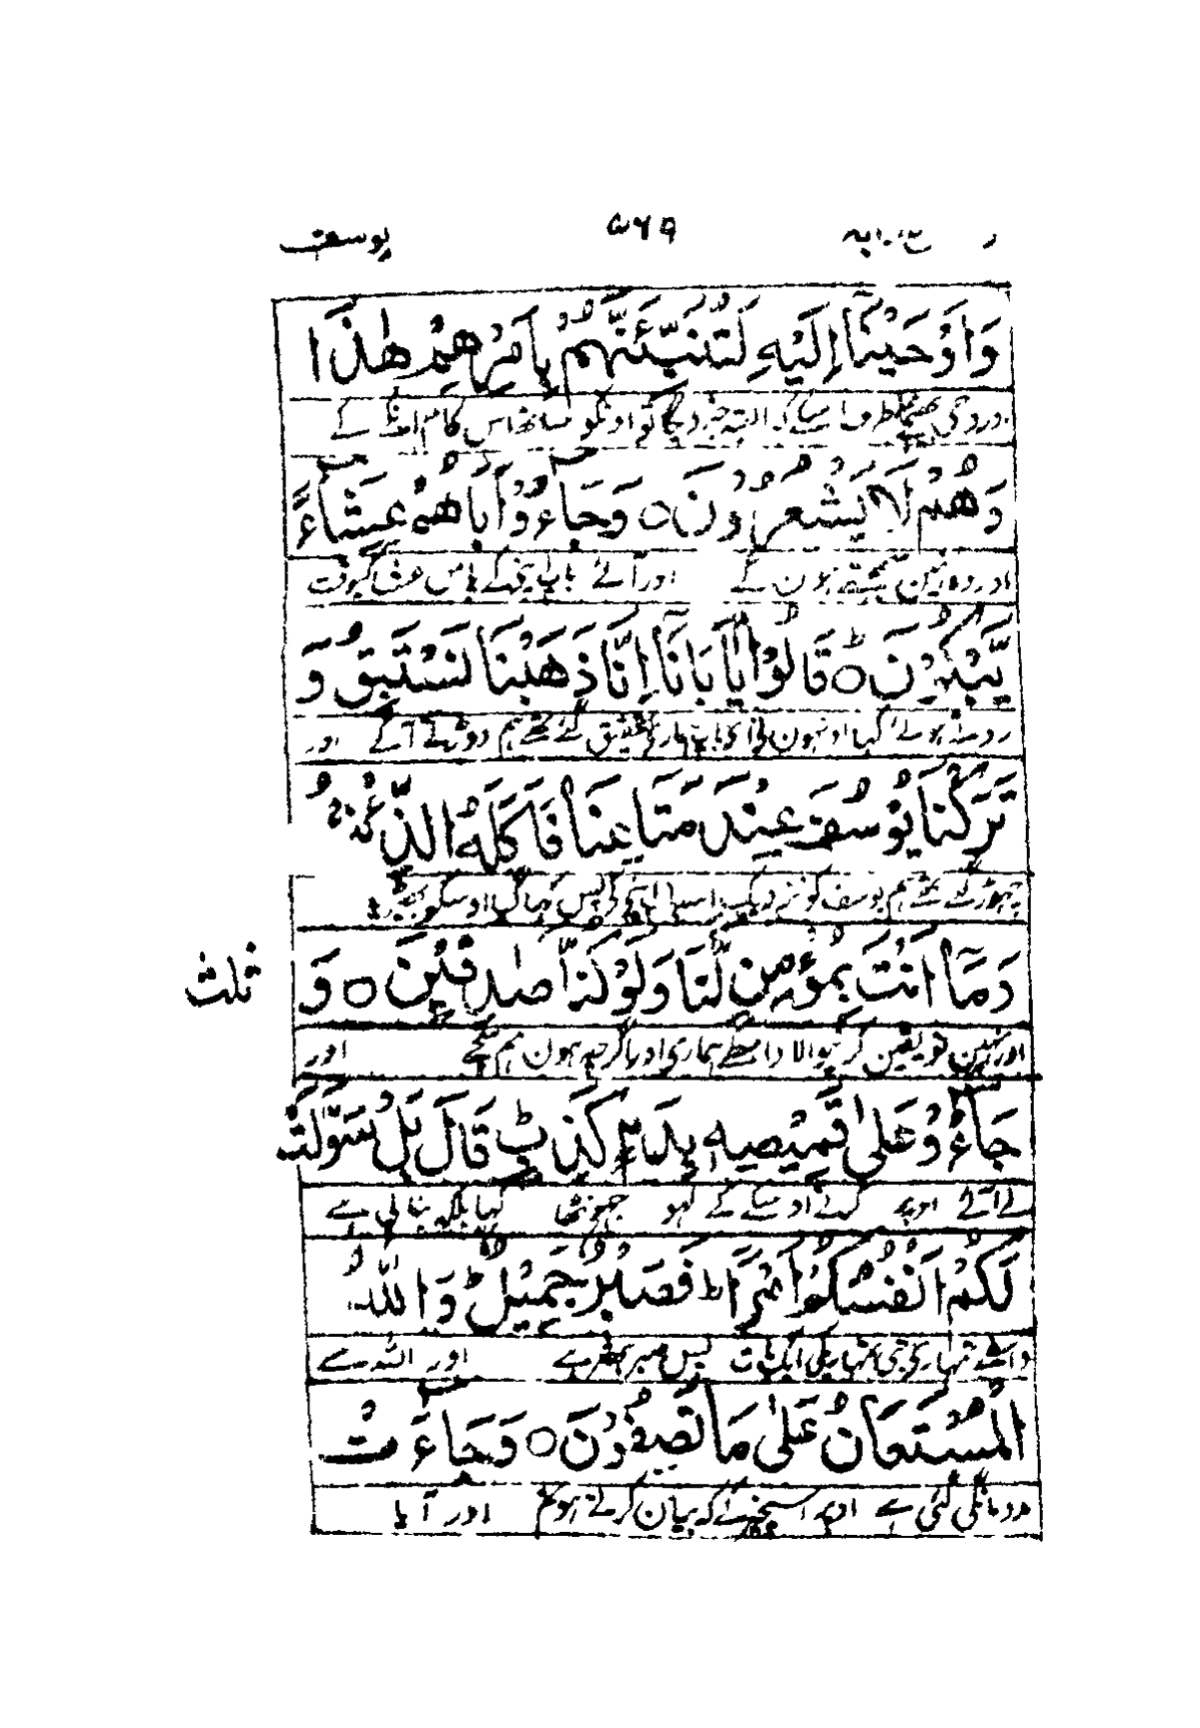 ۵۶۹
یوسف
وَاَوْحَيْنَآ اِلَيْهِ لَتُنَبِّئَنَّهُمْ بِاَمْرِهِمْ هٰذَا
طرف اسکے کہ البتہ خبر دیگا تو اونکو ساتھ اس کام کے
وَهُمْ لَا يَشْعُرُوْنَ ○ وَجَآءُوْٓ اَبَاهُمْ عِشَآءً
اور وہ نہین سمجھتے ہون گے اور آئے باپ اپنے کے پاس عشا کیوقت
يَّبْكُوْنَ ○ؕ قَالُوْا يٰٓاَبَانَآ اِنَّا ذَهَبْنَا نَسْتَبِقُ وَ
روتے ہوئے کہا اونہون نے ای باپ ہمارے تحقیق گئے تھے ہم دوڑتے آگے اور
تَرَكْنَا يُوْسُفَ عِنْدَ مَتَاعِنَا فَاَكَلَهُ الذِّئْبُ ۚ
چھوڑ گئے تھے ہم یوسف کو نزدیک اسباب اپنے کے پس کھا گیا اوسکو بھیڑیا
وَمَآ اَنْتَ بِمُؤْمِنٍ لَّنَا وَلَوْ كُنَّا صٰدِقِيْنَ ○ وَ
ثلث
اور نہین تو یقین کرنیوالا واسطے ہماری اور اگرچہ ہون ہم سچے اور
جَآءُوْ عَلٰى قَمِيْصِهٖ بِدَمٍ كَذِبٍ ؕ قَالَ بَلْ سَوَّلَتْ
لے آئے اوپر کرتے اوسکے کے لہو جھوٹھا کہا بلکہ بنالی ہے
لَكُمْ اَنْفُسُكُمْ اَمْرًا ؕ فَصَبْرٌ جَمِيْلٌ ؕ وَاللّٰهُ
واسطے تمہاری جی تمہاری نے ایک بات پس صبر بہتر ہے اور اللہ سے
الْمُسْتَعَانُ عَلٰى مَا تَصِفُوْنَ ○ وَجَآءَتْ
مدد مانگی گئی ہے اوپر اسچیز کے کہ بیان کرتے ہو تم اور آیا